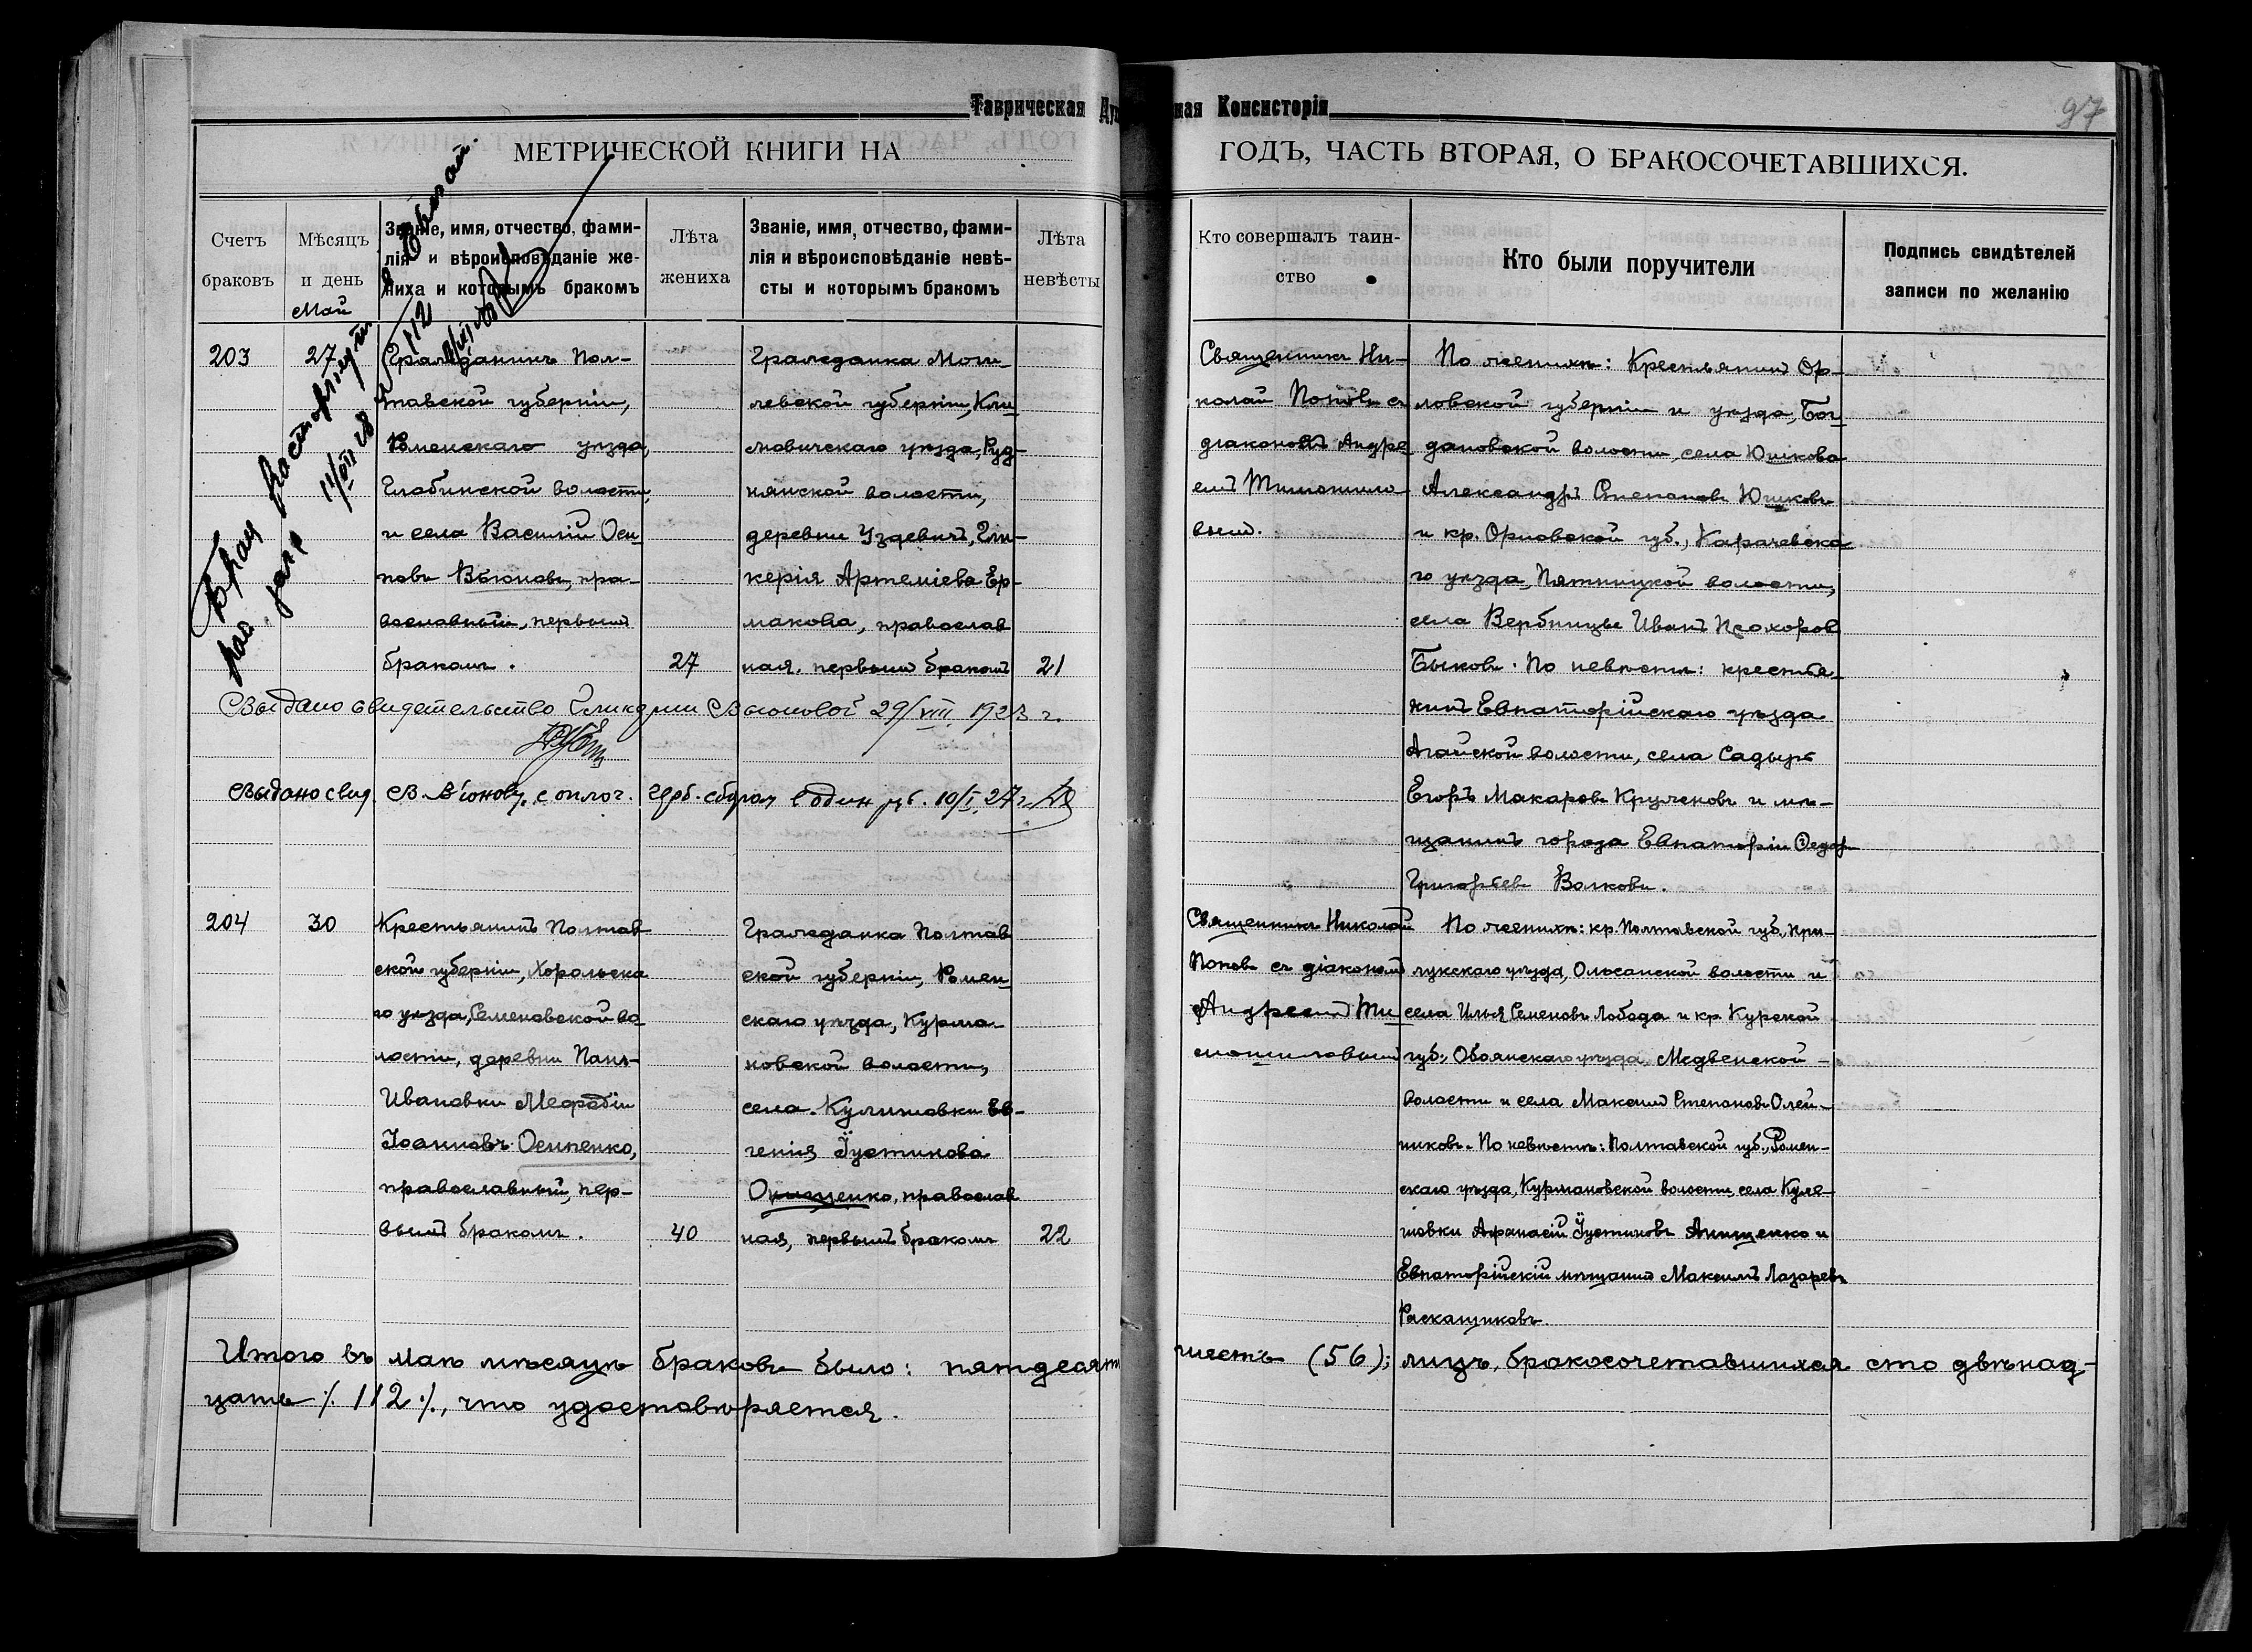 Таврическая Ду ная Консисторія
97
МЕТРИЧЕСКОЙ КНИГИ НА
ГОДЪ, ЧАСТЬ ВТОРАЯ, О БРАКОСОЧЕТАВШИХСЯ.
Счетъ браковъ
Мѣсяцъ и день
Май
Званіе, имя, отчество, фами-
лія и вѣроисповѣданіе же-
ниха и которымъ бракомъ
Лѣта жениха
Званіе, имя, отчество, фами-
лія и вѣроисповѣданіе невѣ-
сты и которымъ бракомъ
Лѣта невѣсты
Кто совершалъ таин-
ство
Кто были поручители
Подпись свидѣтелей
записи по желанію
Брак расторгнут
11/VII 28
112
203
27
Гражданинъ Пол-
тавской губерніи,
Роменскаго уѣзда,
Глабинской волости,
и села Василій Оси-
повъ Вьюновъ, пра-
вославный, первымъ
бракомъ.
27
Гражданка Моги-
левской губерніи, Кли-
мовичскаго уѣзда, Руд-
нянской волости,
деревни Уздевичъ, Гли-
керія Артеміева Ер-
макова, православ
ная, первымъ бракомъ
21
Священникъ Ни-
колай Поповъ съ
діакономъ Андре
емъ Тимошило-
вым.
По женихѣ: Крестьянинъ Ор-
ловской губерніи и уѣзда, Бог-
дановской волости, села Юшкова
Александръ Степановъ Юшковъ
и кр. Орловской губ., Карачевска-
го уѣзда, Пятницкой волости,
села Вербницы Иванъ Прохоровъ
Быковъ. По невѣстѣ: крестья-
нинъ Евпаторійскаго уѣзда
Агайской волости, села Садыръ
Егоръ Макаровъ Круженовъ и мѣ-
щанинъ города Евпаторіи Ѳедоръ
Григорьевъ Волковъ.
Выдано свидетельство Гликерии Вьюновой 29/VIII 1923 г.
Выдано свид. В. Вьонову с оплог. герб. сбором 1 один руб. 10/I 27 г.
204
30
Крестьянинъ Полтав
ской губерніи, Хорольска
го уѣзда, Семеновской во-
лости, деревни Панъ-
Ивановки Меѳодій
Іоанновъ Осипенко,
православный, пер-
вымъ бракомъ.
40
Гражданка Полтав
ской губерніи, Ромен-
скаго уѣзда, Курма-
новской волости,
села Кулишовки Ев-
генія Іустинова
Онищенко, православ
ная, первымъ бракомъ
22
Священникъ Николай
Поповъ съ діакономъ
Андреемъ Ти-
мошиловымъ
По женихѣ: кр. Полтавской губ. При-
лукскаго уѣзда, Ольсанской волости и
села Илья Семеновъ Лобода и кр. Курской
губ., Обоянскаго уѣзда Медвенской
волости и села Максимъ Степановъ Олей-
никовъ. По невѣстѣ: Полтавской губ., Ромен-
скаго уѣзда, Курмановской волости, села Кули-
шовки Аѳанасій Іустиновъ Анищенко и
Евпаторійскій мѣщанинъ Максимъ Лазаревъ
Раскащиковъ.
Итого въ маѣ мѣсяцѣ браковъ было: пятдесятъ шесть (56); лицъ, бракосочетавшихся сто двѣнад-
цать ./. 112 ./., что удостовѣряется.